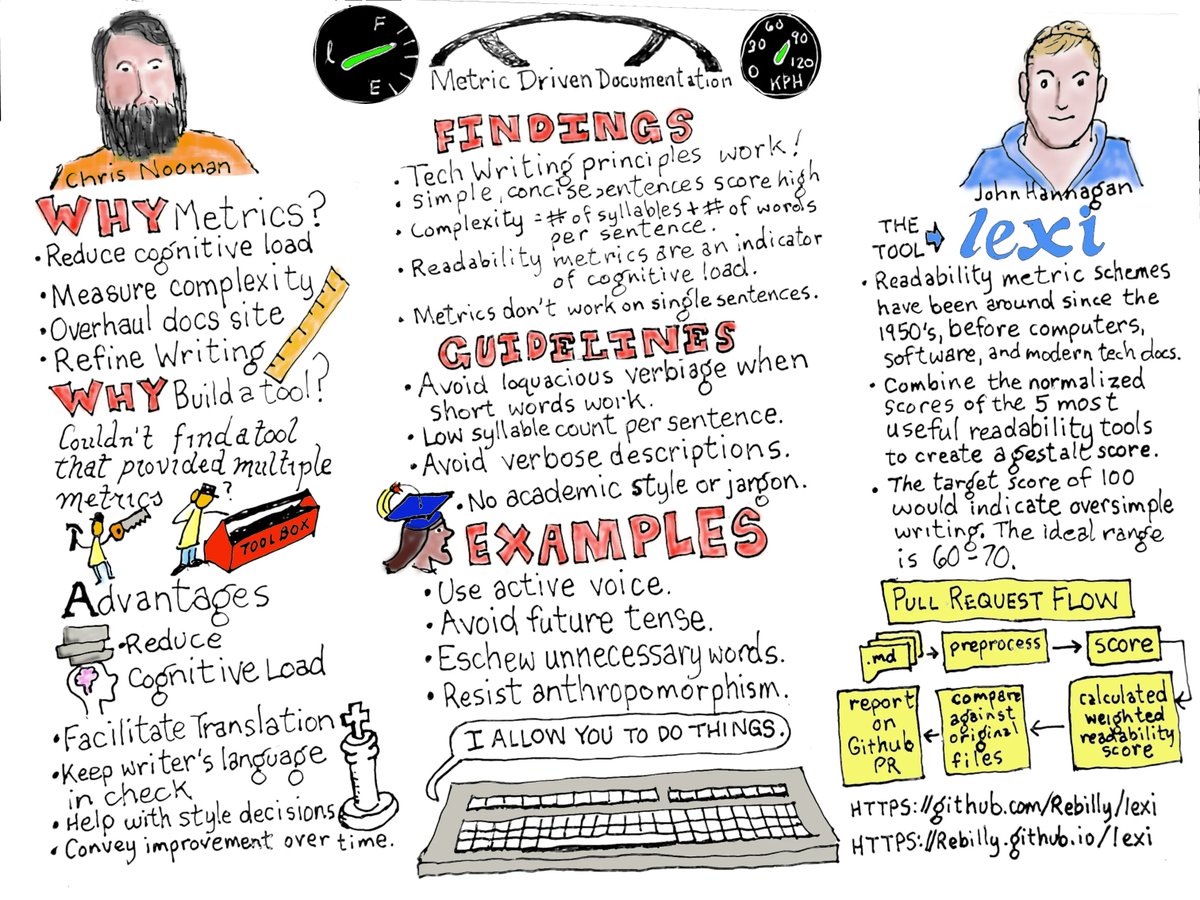 F
E
Metric Driven Documentation
0
30
60
90
120
KPH
Chris Noonan
WHY Metrics?
• Reduce cognitive load
• Measure complexity
• Overhaul docs site
• Refine Writing
WHY Build a tool?
Couldn't find a tool
that provided multiple
metrics
?
TOOLBOX
Advantages
• Reduce
Cognitive Load
• Facilitate Translation
• Keep writer's language
in check
• Help with style decisions
• Convey improvement over time.
FINDINGS
• Tech Writing principles work!
• Simple, concise sentences score high
• Complexity = # of syllables + # of words
per sentence.
• Readability metrics are an indicator
of cognitive load.
• Metrics don't work on single sentences.
GUIDELINES
• Avoid loquacious verbiage when
short words work.
• Low syllable count per sentence.
• Avoid verbose descriptions.
• No academic style or jargon.
EXAMPLES
• Use active voice.
• Avoid future tense.
• Eschew unnecessary words.
• Resist anthropomorphism.
I ALLOW YOU TO DO THINGS.
John Hannagan
THE
TOOL
lexi
• Readability metric schemes
have been around since the
1950's, before computers,
software, and modern tech docs.
• Combine the normalized
scores of the 5 most
useful readability tools
to create a gestalt score.
• The target score of 100
would indicate oversimple
writing. The ideal range
is 60-70.
PULL REQUEST FLOW
.md
preprocess
score
calculated
weighted
readability
score
compare
against
original
files
report
on
Github
PR
HTTPS://github.com/Rebilly/lexi
HTTPS://Rebilly.github.io/lexi